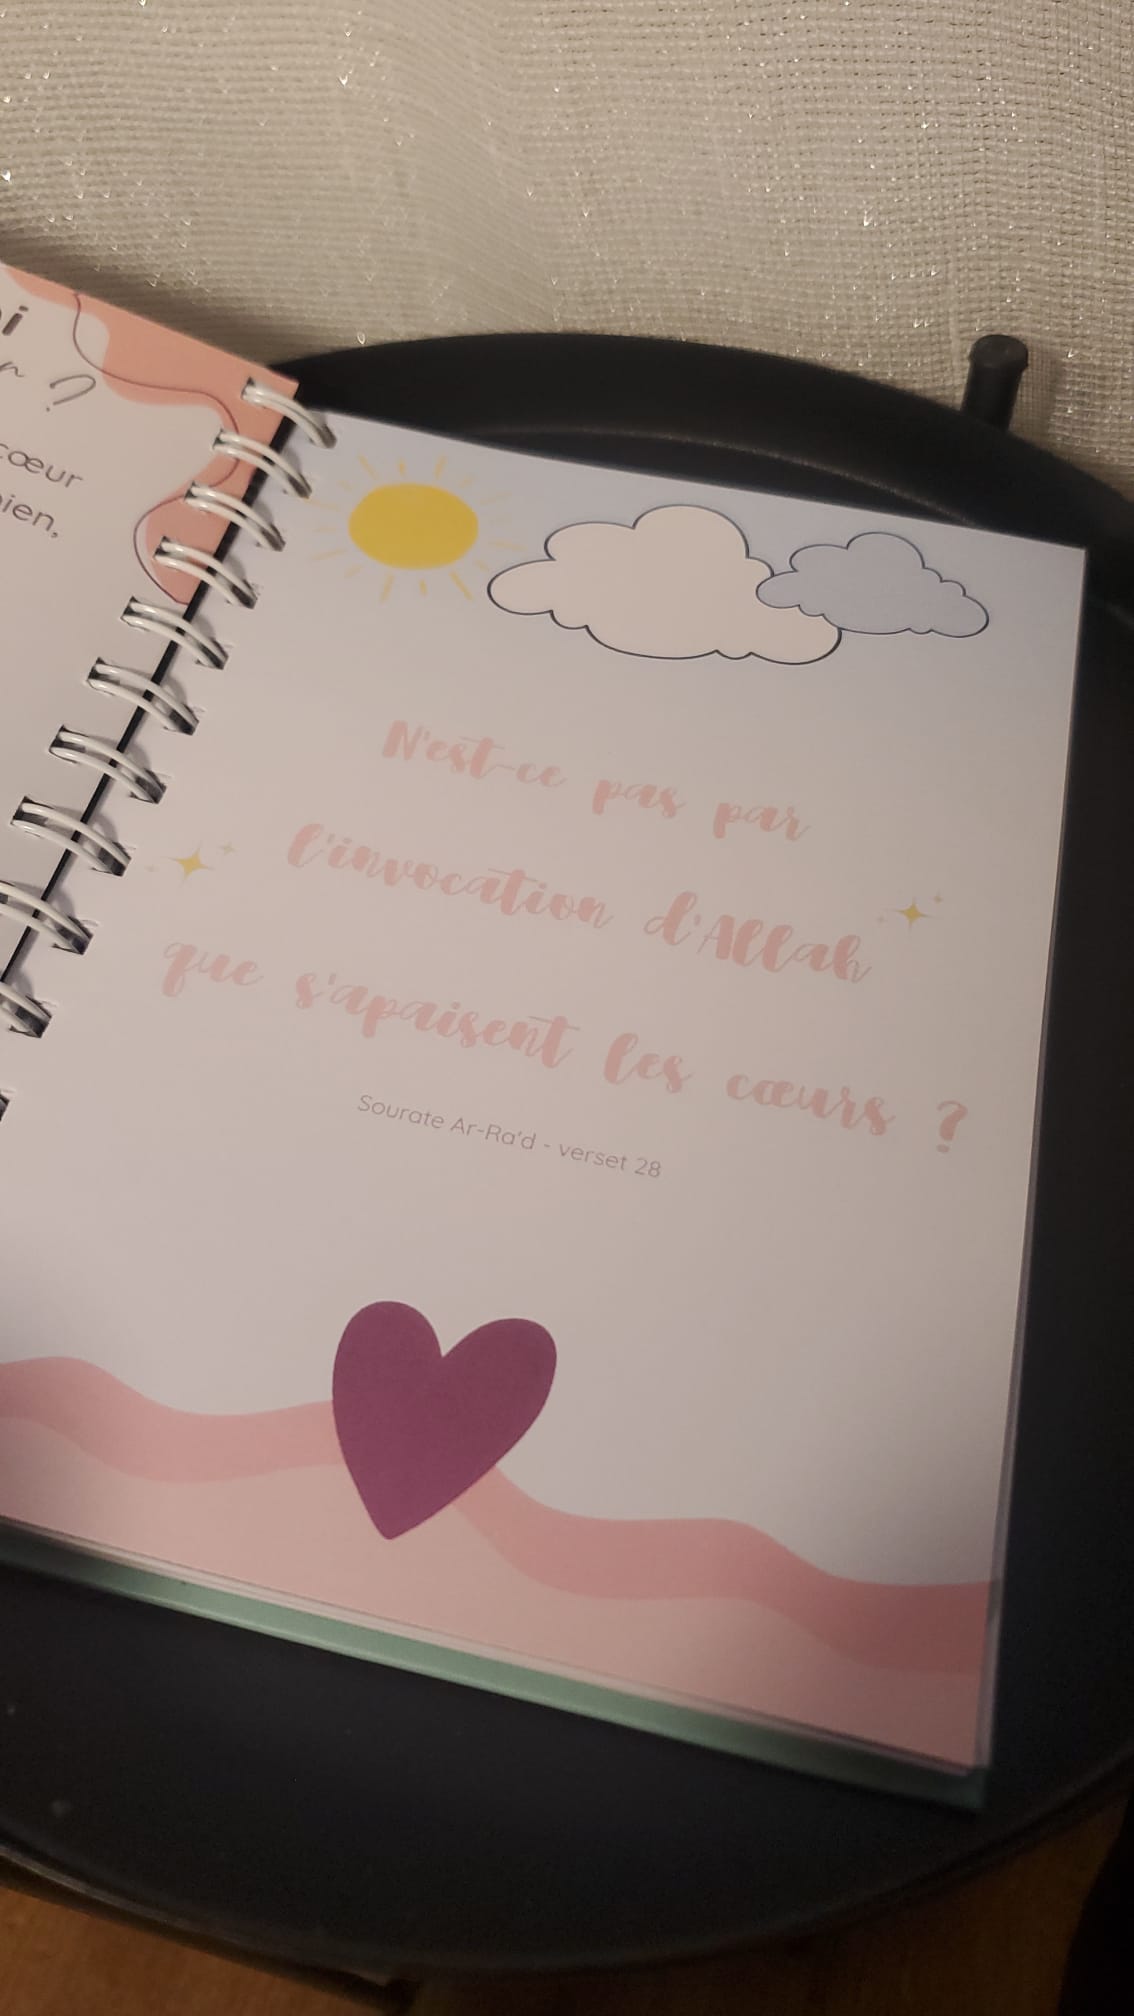 ?
cœur
N'est-ce pas par
l'invocation d'Allah
que s'apaisent les cœurs ?
Sourate Ar-Ra'd - verset 28